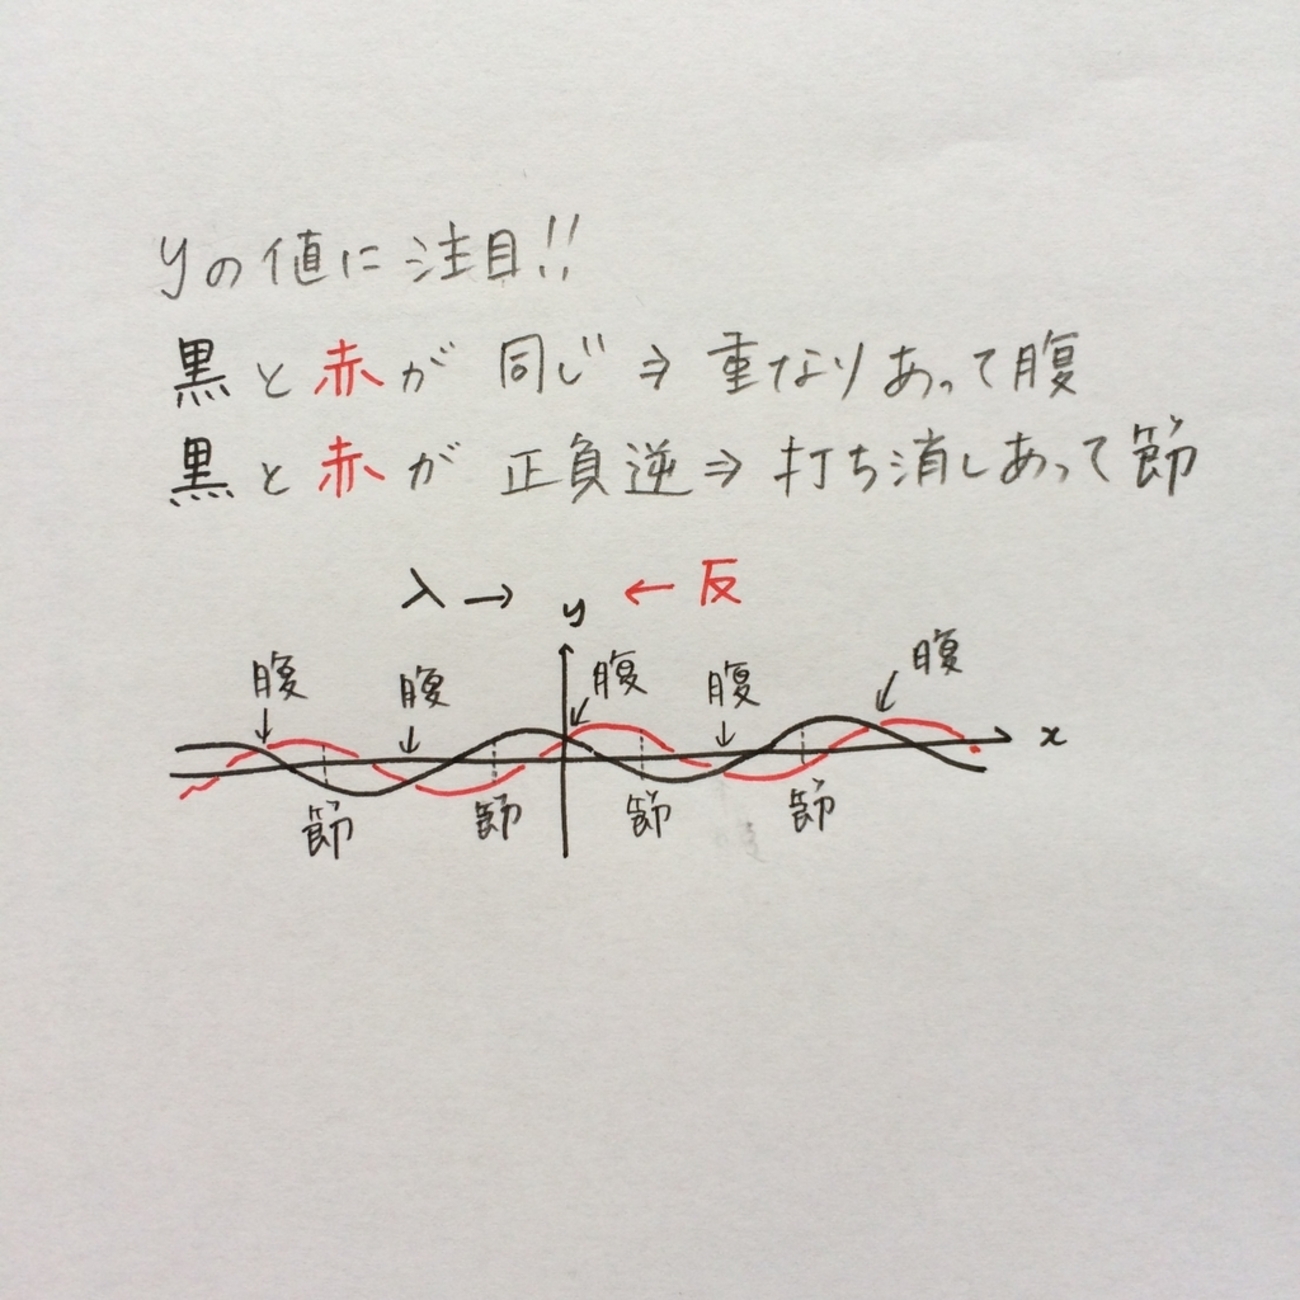 yの値に注目!!
黒と赤が 同じ ⇒ 重なりあって腹
黒と赤が 正負逆 ⇒ 打ち消しあって節
入→ ←反
y
腹 腹 腹 腹 腹
x
節 節 節 節